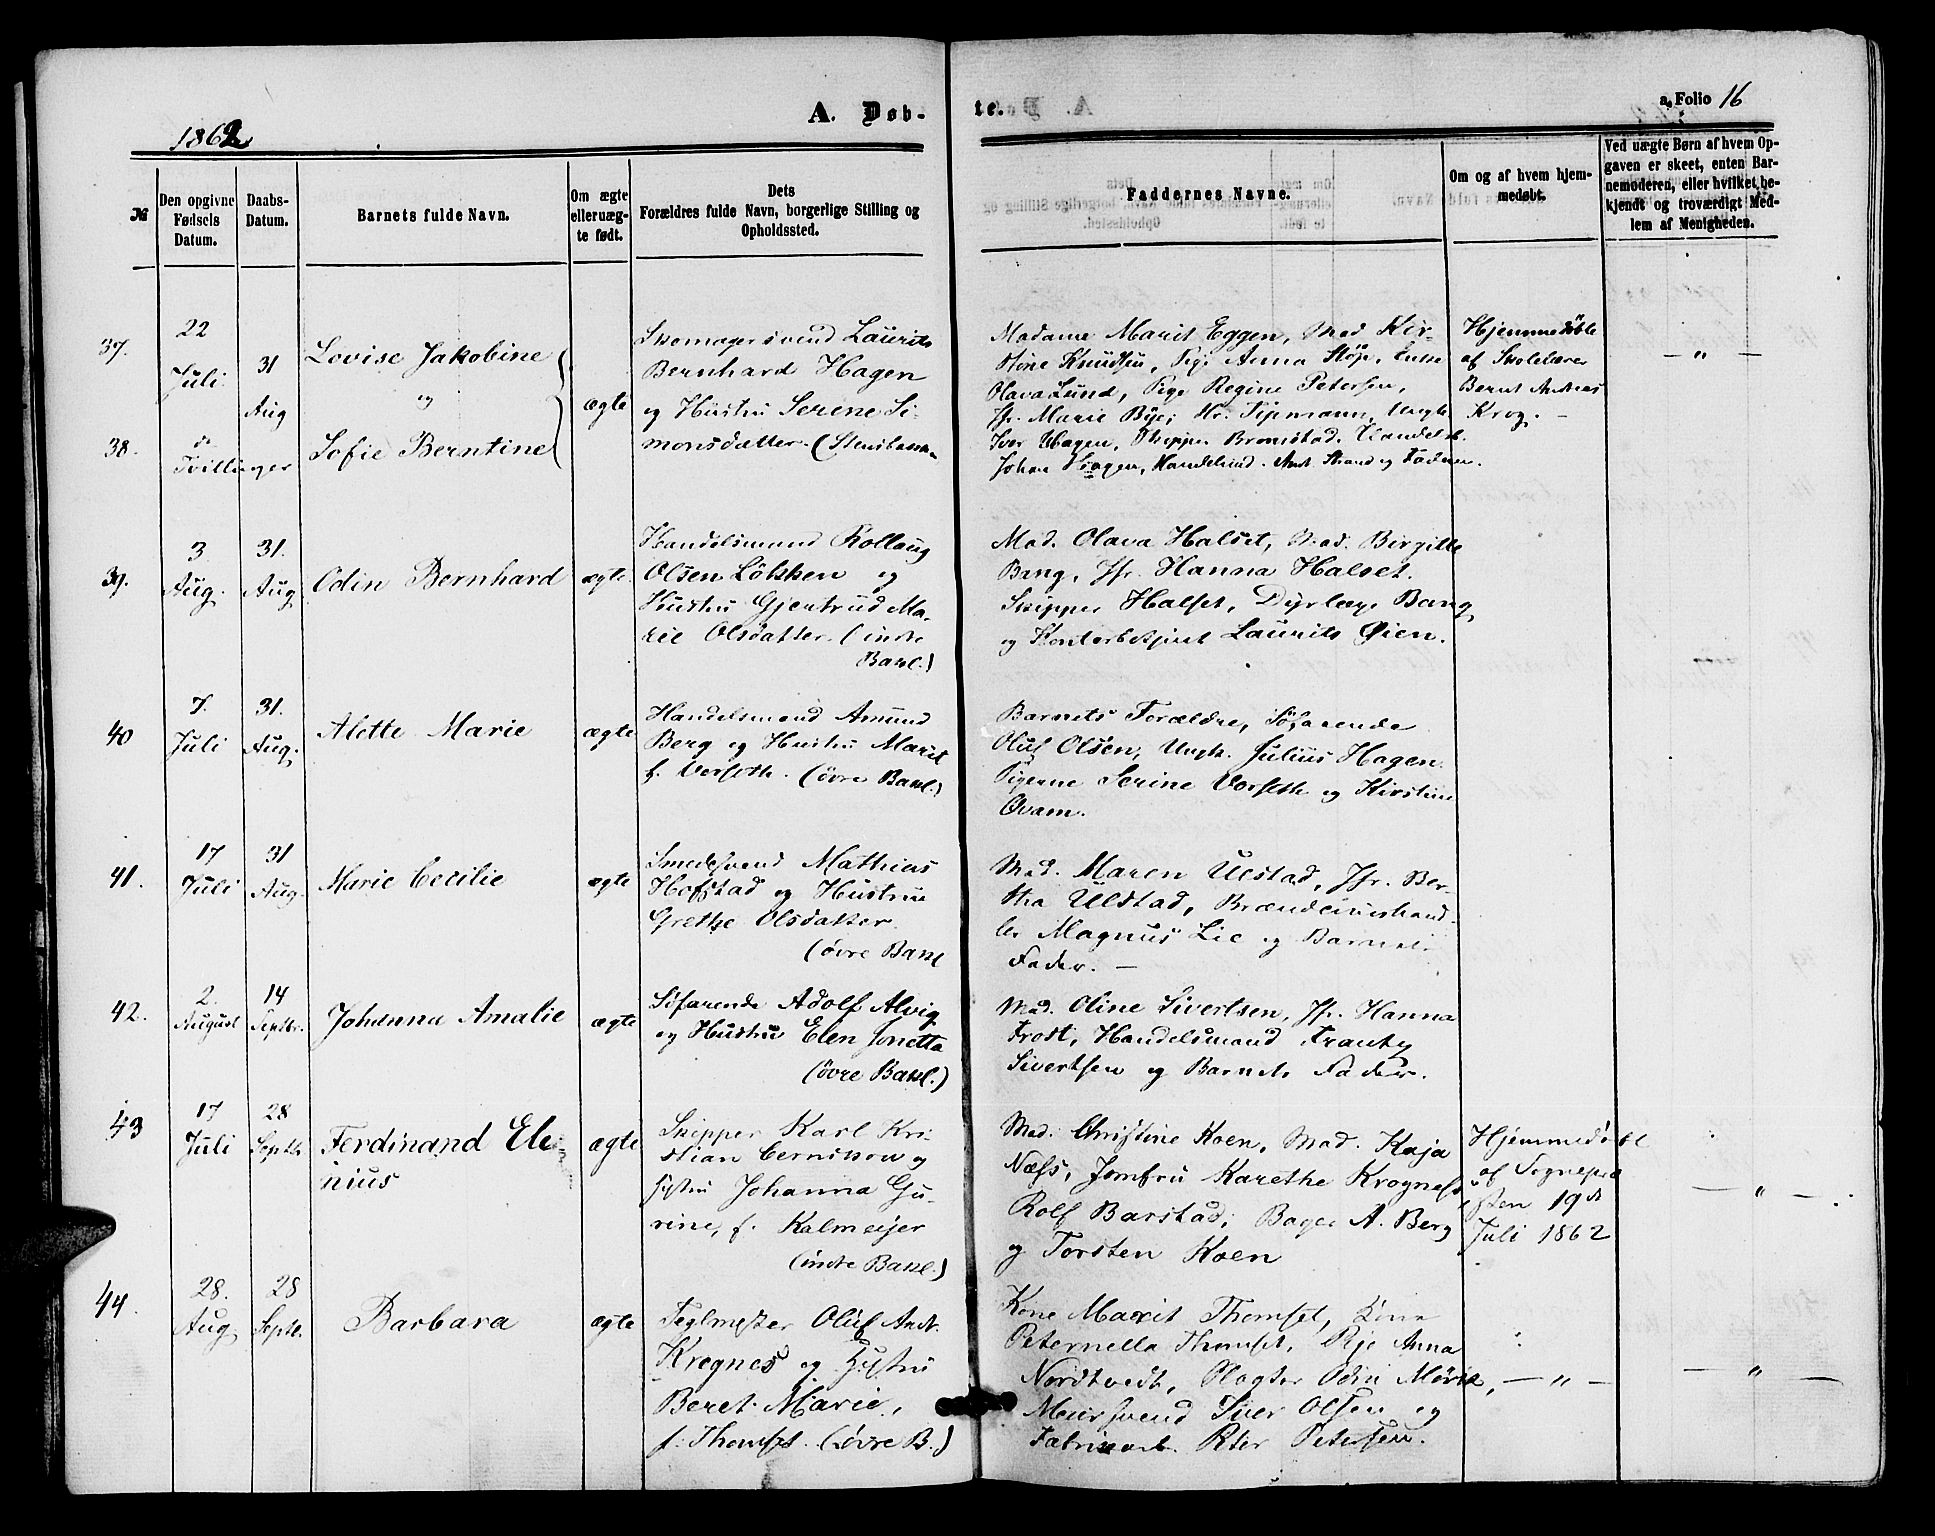 1862.
A. Døb-
te.
a. Folio 16
№
Den opgivne
Fødsels
Datum.
Daabs-
Datum.
Barnets fulde Navn.
Om ægte
eller uæg-
te født.
Dets
Forældres fulde Navn, borgerlige Stilling og
Opholdssted.
Faddernes Navne.
Om og af hvem hjem-
medøbt.
Ved uægte Børn af hvem Op-
gaven er skeet, enten Bar-
nemoderen, eller hvilket be-
kjendt og troværdigt Med-
lem af Menigheden.
37.
22
Juli
31
Aug
Lovise Jakobine
"
38.
do
Tvillinger
Sofie Berntine
ægte
Skomagersvend Laurits
Bernhard Hagen
og Hustru Serene Si-
monsdatter. (Stenbersen
Madame Marit Eggen, Mad Kir-
stine Knudsen, Pige Anna Støp, Enke
Olava Lund, Pige Regine Petersen,
Jfr. Marie Bye; Hr. Tipmann, Ungk.
Iver Hagen, Skipper Bromstad, Handelsb.
Johan Hagen, Handelsind. Arnt Strand og Faderen.
Hjemmedøbte
af Skolelærer
Bernt Andreas
Krog. -
- " -
39.
3
Aug.
31.
Aug
Odin Bernhard
ægte.
Handelsmand Rollaug
Olsen Løkken og
Hustru Gjertrud Ma-
rie Olsdatter (indre
Bakl.)
Mad. Olava Halset, Mad. Birgitte
Bang, Jfr. Hanna Halset.
Skipper Halset, Dyrlæge Bang
og Kontorbetjent Laurits Øien.
40
7.
Juli
31.
Aug.
Alette Marie
ægte
Handelsmand Amund
Berg og Hustru Marit
f. Vorseth. (øvre Bakl.)
Barnets Forældre, Søfarende
Oluf Olsen, Ungk. Julius Hagen
Pigerne Serine Vorseth og Kirstine
Qvam.
41.
17
Juli
31
Aug.
Marie Cecilie
ægte
Smedesvend Mathias
Hofstad og Hustru
Grethe Olsdatter
(øvre Bakl
Mad. Maren Ulstad, Jfr. Ber-
tha Uldstad, Brændeviinshand-
ler Magnus Lie og Barnets
Fader. -
42.
2.
August
14
Septbr.
Johanna Amalie
ægte
Søfarende Adolf Alvig
og Hustru Elen Jonetta
(øvre Bakl.)
Mad. Oline Sivertsen, Jfr. Hanna
Frost, Handelsmand Frants
Sivertsen og Barnets Fader.
43
17
Juli
28
Septbr
Ferdinand Ele-
nius
ægte
Skipper Karl Kri-
stian Berntson og
Hustru Johanna Gu-
rine, f. Kalmeijer
(indre Bakl.)
Mad. Christine Koen, Mad. Kaja
Næss, Jomfru Karethe Krogness,
Rolf Barstad, Bager A. Berg
og Torsten Koen
Hjemmedøbt
af Sognepræ
sten 19d
Juli 1862
- " -
44.
28.
Aug
28
Septb.
Barbara
ægte
Teglmester Oluf Andr.
Kregnes og Hustru
Beret Marie,
f. Thomset. (øvre B.)
Kone Marit Thomset, Kone
Peternella Thomset, Pige Anna
Nordtvedt, Slagter Odin Mørk,
Muursvend Iver Olsen og
Fabrikarb. Peter Petersen.
- " -
- " -